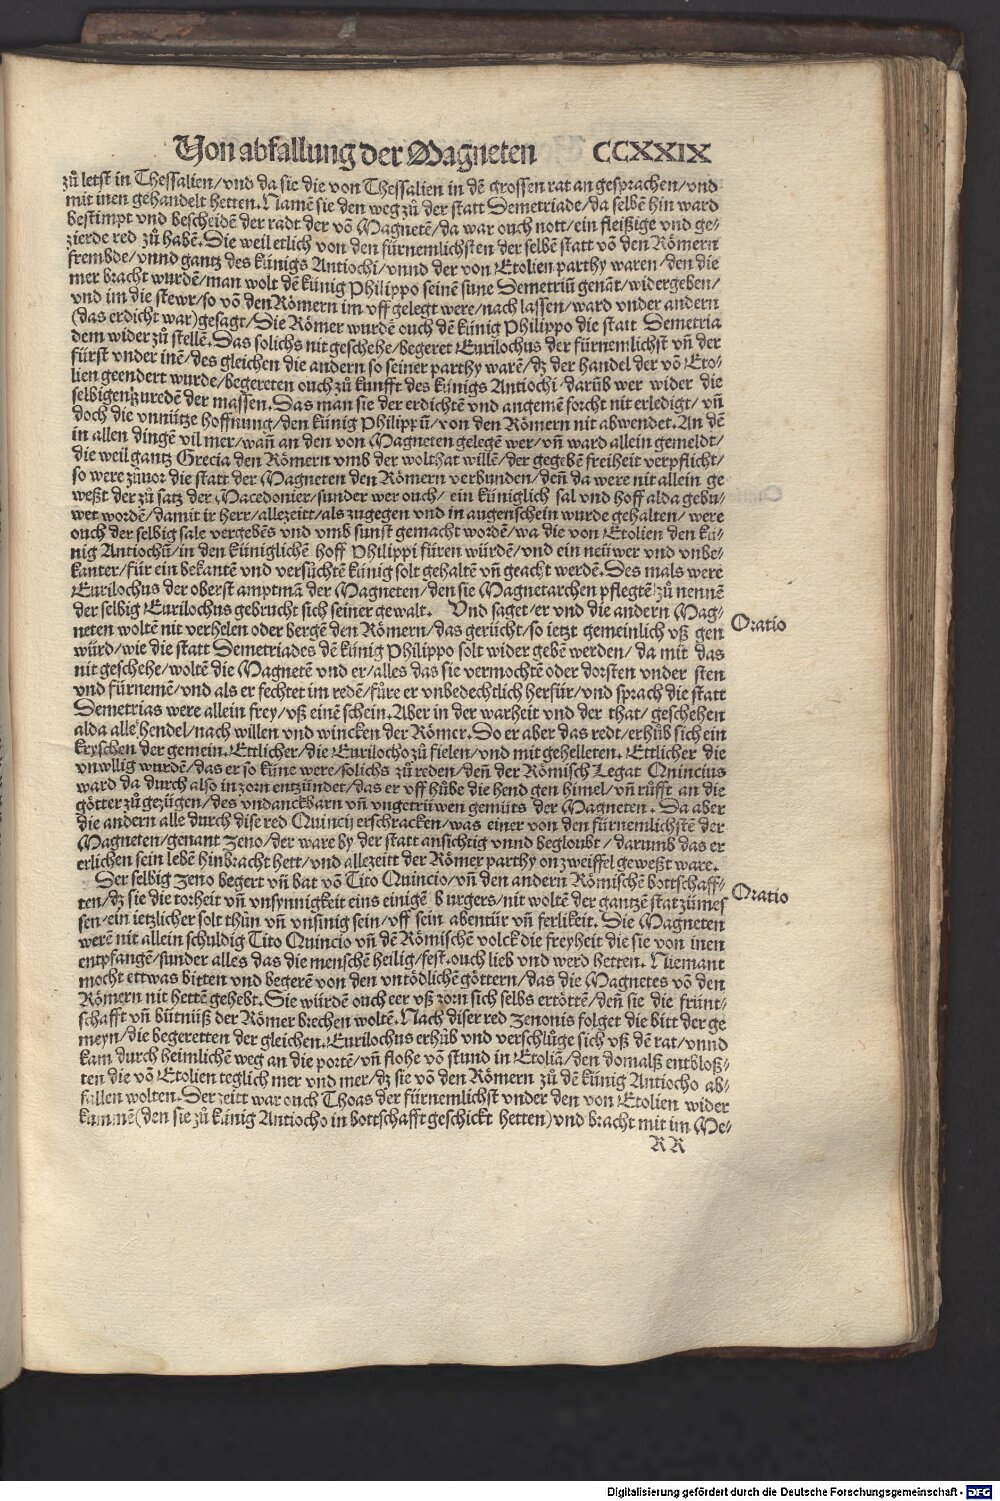 Von abfallung der Magneten CCXXIX
zů letst in Thessalien/vnd da sie die von Thessalien in dē grossen rat an gesprachen/vnd
mit inen gehandelt hetten. Namē sie den weg zů der statt Demetriade/da selbē hin ward
bestimpt vnd bescheidē der radt der vō Magnetē/da war ouch nott/ein fleißige vnd ge⸗
zierde red zů habē. Die weil etlich von den fürnemlichsten der selbē statt vō den Römern
frembde/vnnd gantz des künigs Antiochi/vnnd der von Etolien parthy waren/den die
mer bracht wurdē/man wolt dē künig Philippo seinē sune Demetriū genāt/widergeben/
vnd im die stewr/so vō den Römern im vff gelegt were/nach lassen/ward vnder andern
(das erdicht war)gesagt/Die Römer wurdē ouch dē künig Philippo die statt Demetria
dem wider zů stellē. Das solichs nit geschehe/begeret Eurilochus der fürnemlichst vn̄ der
fürst vnder inē/des gleichen die andern so seiner parthy warē/dz der handel der vō Eto⸗
lien geendert wurde/begereten ouch zů kunfft des künigs Antiochi/darūb wer wider die
selbigen zureden der massen. Das man sie der erdichtē vnd angemē forcht nit erledigt/vn̄
doch die vnnütze hoffnung/den künig Philippū/von den Römern nit abwendet. An dē
in allen dingē vil mer/wan̄ an den von Magneten gelegē wer/vn̄ ward allein gemeldt/
die weil gantz Grecia den Römern vmb der wolthat willē/der gegebē freiheit verpflicht/
so were zůuor die statt der Magneten den Römern verbunden/den̄ da were nit allein ge
weßt der zů satz der Macedonier/sunder wer ouch/ein küniglich sal vnd hoff alda gebu⸗
wet wordē/damit ir herr/allezeitt/als zugegen vnd in augenschein wurde gehalten/were
ouch der selbig sale vergebēs vnd vmb sunst gemacht wordē/wa die von Etolien den kü⸗
nig Antiochū/in den küniglichē hoff Philippi füren würdē/vnd ein neüwer vnd vnbe⸗
kanter/für ein bekantē vnd versüchtē künig solt gehaltē vn̄ geacht werdē. Des mals were
Eurilochus der oberst amptmā der Magneten/den sie Magnetarchen pflegtē zů nennē
der selbig Eurilochus gebrucht sich seiner gewalt. Vnd saget/er vnd die andern Mag⸗
neten woltē nit verhelen oder bergē den Römern/das gerücht/so ietzt gemeinlich vß gen
würd/wie die statt Demetriades dē künig Philippo solt wider gebē werden/da mit das
nit geschehe/woltē die Magnetē vnd er/alles das sie vermochtē oder dorsten vnder sten
vnd fürnemē/vnd als er fechtet im redē/füre er vnbedechtlich herfür/vnd sprach die statt
Demetrias were allein frey/vß einē schein. Aber in der warheit vnd der that/geschehen
alda alle hendel/nach willen vnd wincken der Römer. Do er aber das redt/erhůb sich ein
kryschen der gemein. Ettlicher/die Eurilocho zů fielen/vnd mit gehelleten. Ettlicher die
vnwllig wurdē/das er so küne were/solichs zů reden/den̄ der Römisch Legat Quincius
ward da durch also in zorn entzündet/das er vff hůbe die hend gen himel/vn̄ růfft an die
götter zů gezügen/des vndanckbarn vn̄ vngetrüwen gemüts der Magneten. Da aber
die andern alle durch dise red Quincij erschracken/was einer von den fürnemlichstē der
Magneten/genant Zeno/der ware by der statt ansichtig vnnd begloubt/darumb das er
erlichen sein lebē hinbracht hett/vnd allezeitt der Römer parthy on zweiffel geweßt ware.
Der selbig Zeno begert vn̄ bat vō Tito Quincio/vn̄ den andern Römischē bottschaff⸗
ten/dz sie die torheit vn̄ vnsynnigkeit eins einigē burgers/nit woltē der gantzē stat zůmes
sen/ein ietzlicher solt thůn vn̄ vnsinig sein/vff sein abentür vn̄ ferlikeit. Die Magneten
werē nit allein schuldig Tito Quincio vn̄ dē Römischē volck die freyheit die sie von inen
entpfangē/sunder alles das die menschē heilig/fest/ouch lieb vnd werd hetten. Niemant
mocht ettwas bitten vnd begerē von den vntödlichē göttern/das die Magnetes vō den
Römern nit hettē gehebt. Sie würdē ouch eer vß zorn sich selbs ertöttē/den̄ sie die frünt⸗
schafft vn̄ bütnüß der Römer brechen woltē. Nach diser red Zenonis folget die bitt der ge
meyn/die begeretten der gleichen. Eurilochus erhůb vnd verschlůge sich vß dē rat/vnnd
kam durch heimlichē weg an die portē/vn̄ flohe vō stund in Etoliā/den domalß entbloß⸗
ten die vō Etolien teglich mer vnd mer/dz sie vō den Römern zů dē künig Antiocho ab⸗
fallen wolten. Der zeitt war ouch Thoas der fürnemlichst vnder den von Etolien wider
kummē(den sie zů künig Antiocho in bottschafft geschickt hetten)vnd bracht mit im Me⸗
RR
Oratio
Oratio
Digitalisierung gefördert durch die Deutsche Forschungsgemeinschaft - DFG